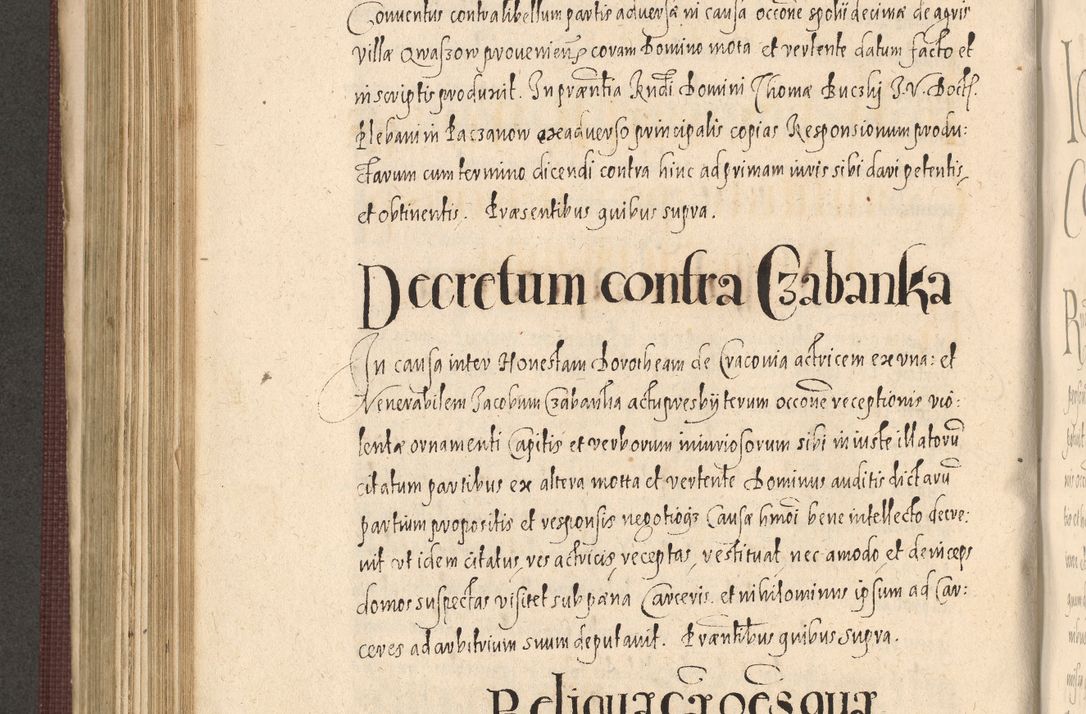 Conventus contra libellum partis adversæ in causa occõne spolii decimæ de agris
villæ Qwaszow provenien̄ coram Domino mota et vertente datum facto et
in scriptis produxit. In præntia Rndi Domini Thomæ Buczky J. V. Doct.
Plebani in Paczanow ex adverso principalis copias Responsionum produ:
ctarum cum termino dicendi contra hinc ad primam iuris sibi dari petentis
et obtinentis. Præsentibus quibus supra.
Decretum contra Czabanka
In causa inter Honestam Dorotheam de Cracovia actricem ex una: et
Venerabilem Jacobum Czabanka actu presbyterum occõne receptionis vio:
lentæ ornamenti Capitis et verborum iniuriosorum sibi iniuste illatorū
citatum partibus ex altera motta et vertente Dominus auditis dictarū
partium propositis et responsis negotioq3 Causæ hmõi bene intellecto decre:
vit ut idem citatus, res actricis receptas, restituat nec amodo et deinceps
domos suspectas visitet sub pæna Carceris. et nihilominus ipsum ad Car:
ceres ad arbitrium suum deputavit. Præntibus quibus supra.
Reliqua cā oēs qua